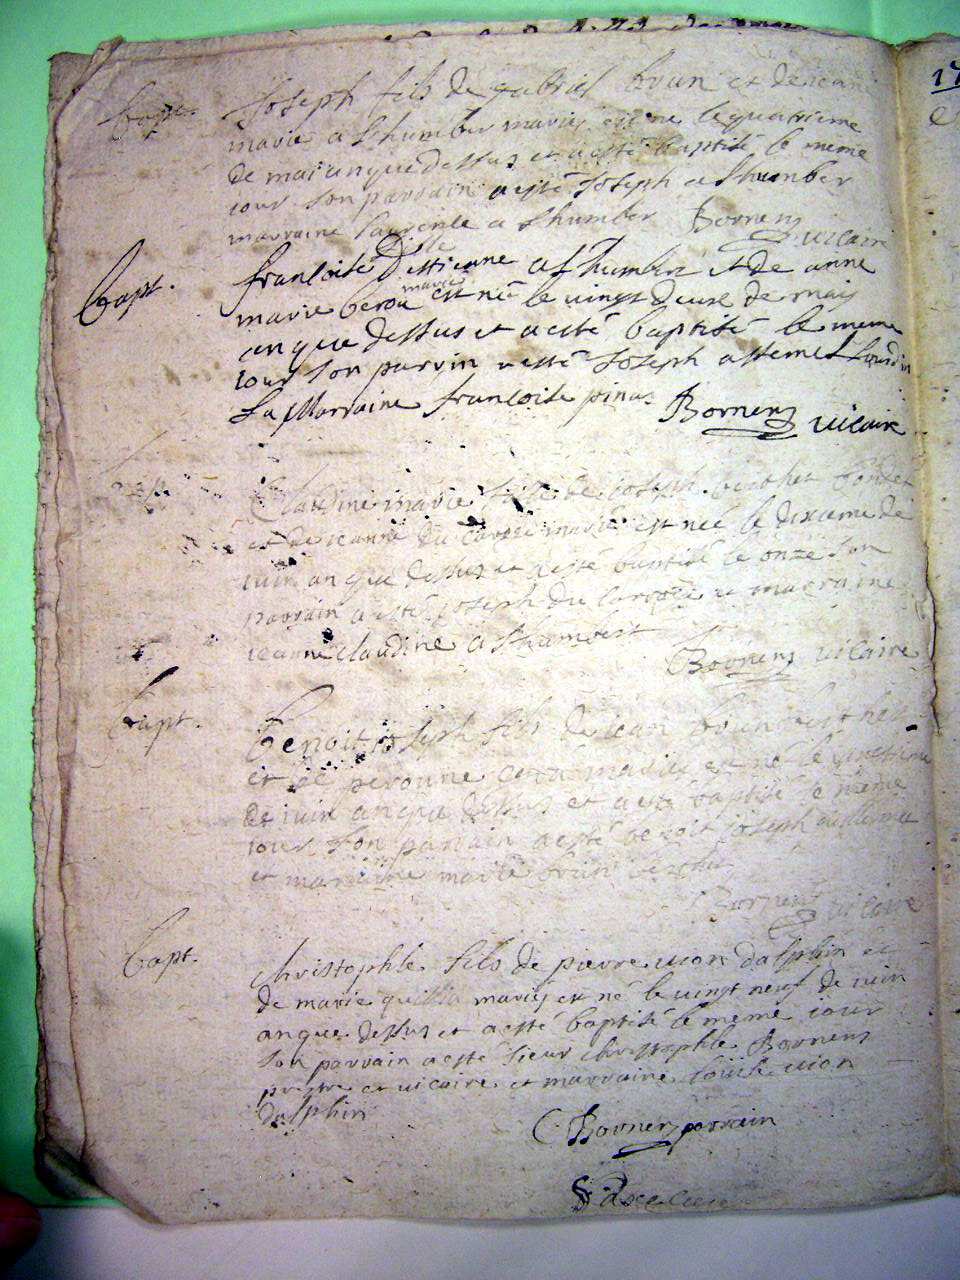 Bapt. Joseph fils de gabriel brun et de
marie a Lhumbert maries est ne le quatrieme
de mai an que dessus et a esté baptisé le meme
iour son parrain a esté Joseph a Lhumber
marraine Laurence a Lhumber Bornens vicaire
Bapt. francoise d'estienne a Lhumbert et de anne
marie berou marie est né le vingt deuxe de may
an que dessus et a esté baptisée le meme
iour son parrin a esté Joseph
La Marraine francoise pinas Bornens vicaire
Claudine marie fille de ioseph
et de ieanne du carroz maries est née le dixieme de
iuin an que dessus et a esté baptisé le onze son
parrain a esté joseph du carroz et marraine
ieanne claudine a Lhumbert
Bornens vicaire
bapt. Benoit ioseph fils de iean
et de peronne maries est né le
de iuin an que dessus et a esté baptisé le meme
iour son parrain a esté benoit joseph
et marraine marie brun
Bornens vicaire
bapt. christophle fils de pierre vion dalphin et
de marie maries est né le vingt neuf de iuin
an que dessus et a esté baptisé le meme iour
son parrain a esté sieur christophle Bornens
prestre et vicaire et marraine louise vion
dalphin
C. Bornens parrain